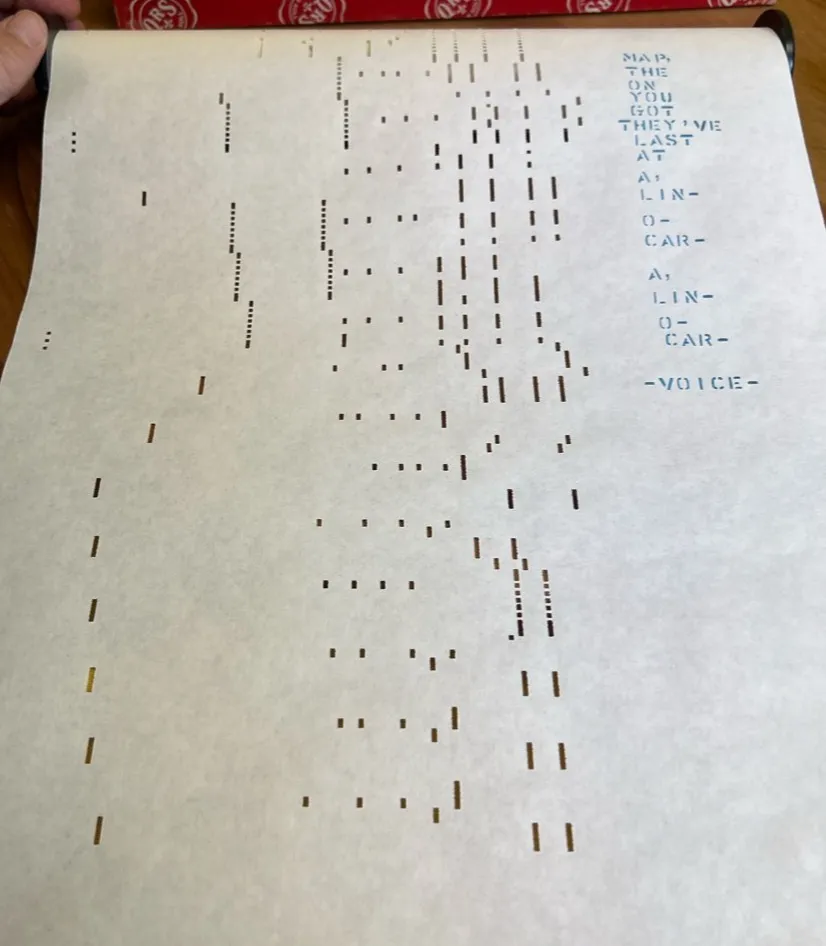 MAP,
THE
ON
YOU
GOT
THEY'VE
LAST
AT
A,
LIN-
O-
CAR-
A,
LIN-
O-
CAR-
-VOICE-